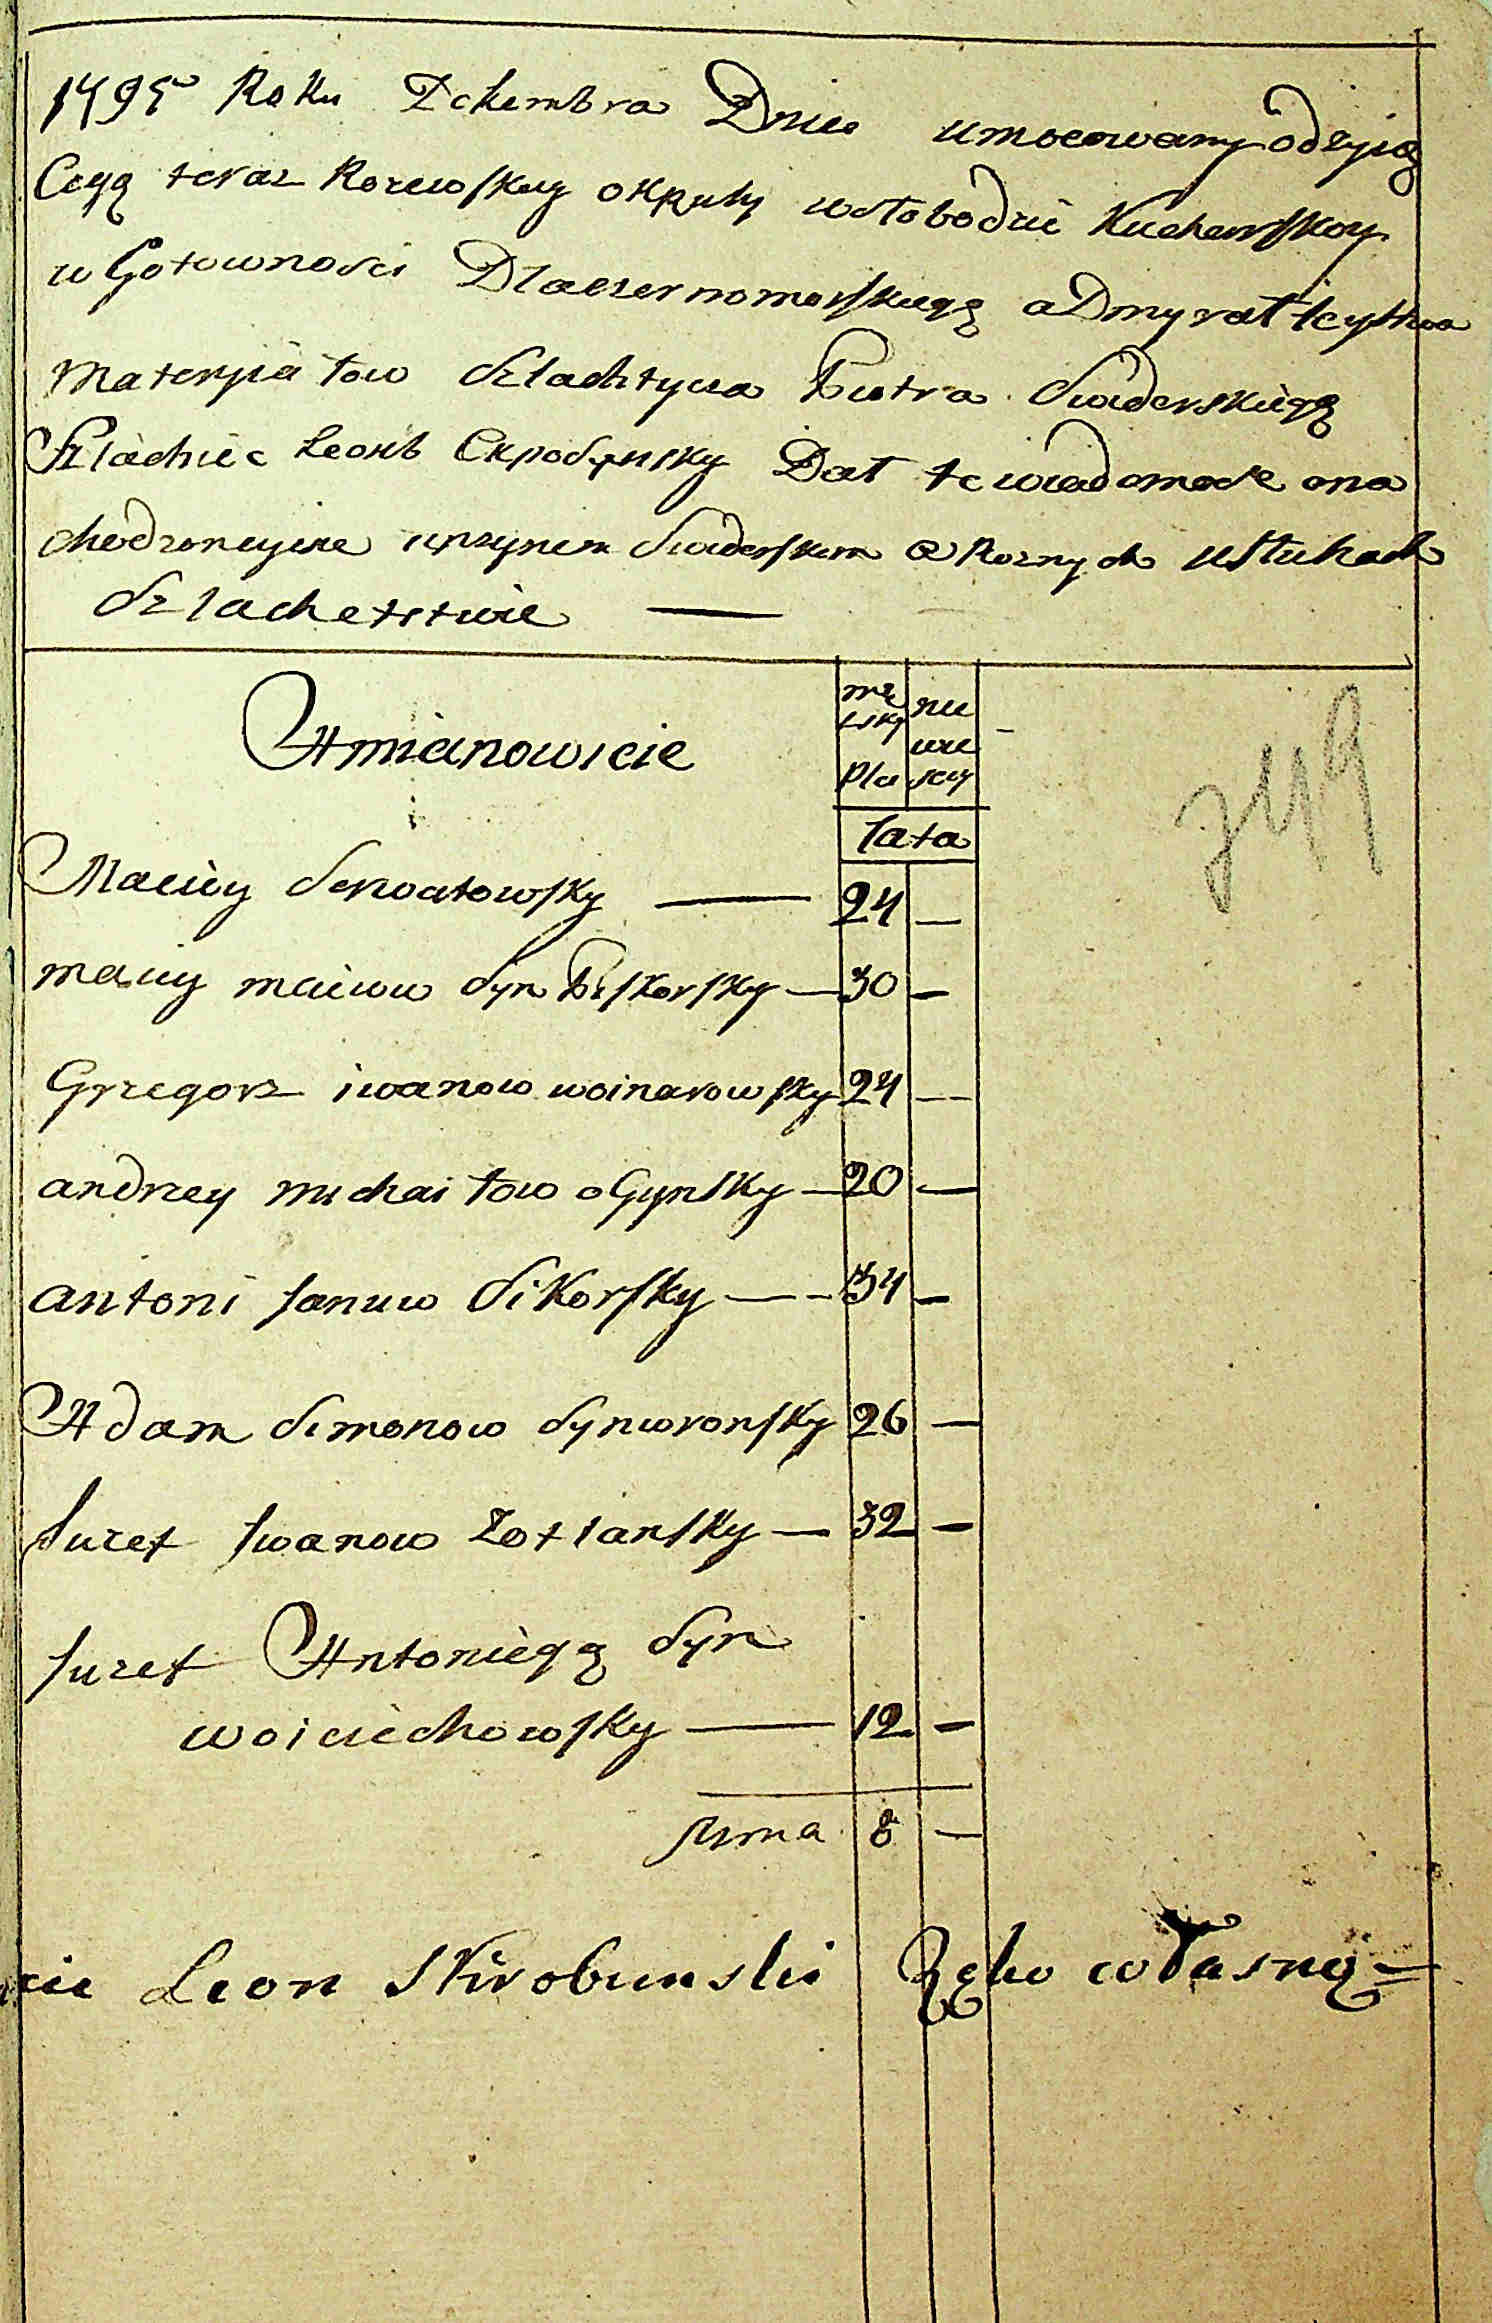 1795 Roku Dekembra Dnia umocowany odżyią
Cegą teraz Kozewskuy okruhy wsłobodzie Kucherskoy
w Gotowności Dlaczernomorskiegą aDmyrałteystwa
Materyiałow Szlachtycza Piotra Swiderskiegą
Szlachiec Leonb Скробунsky Dał te wiadomosc ona
chodzoncyisie uprzynem Swiderskem o Roznych usłuhach
Szlachetstwie —
Amianowicie
mę nie
skỳ wie
Płci scey
lata
Maciey Senoatowsky — 24 —
maciy maciwu Syn Piskorsky — 30 —
Grzegorz iwanow woinarowsky 24 —
andrzey michaiłow oGynsky — 20 —
antoni Januw Sikorsky — 34 —
Adam Simonow Synwronsky 26 —
Juzef Jwanow Zotlansky — 32 —
Juzef Antoniegą Syn
woiciechowsky — 12 —
suma 8 —
Leon Skirobunski Ręko własną
349